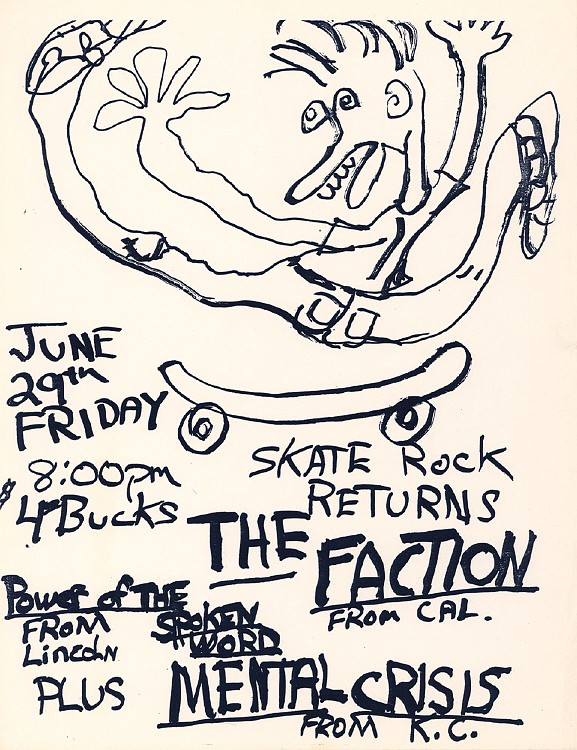 JUNE
29th
FRIDAY
8:00pm
$4 Bucks
SKATE ROCK
RETURNS
THE FACTION
FROM CAL.
POWER of THE
SPOKEN
WORD
FROM
Lincoln
PLUS
MENTAL CRISIS
FROM K.C.